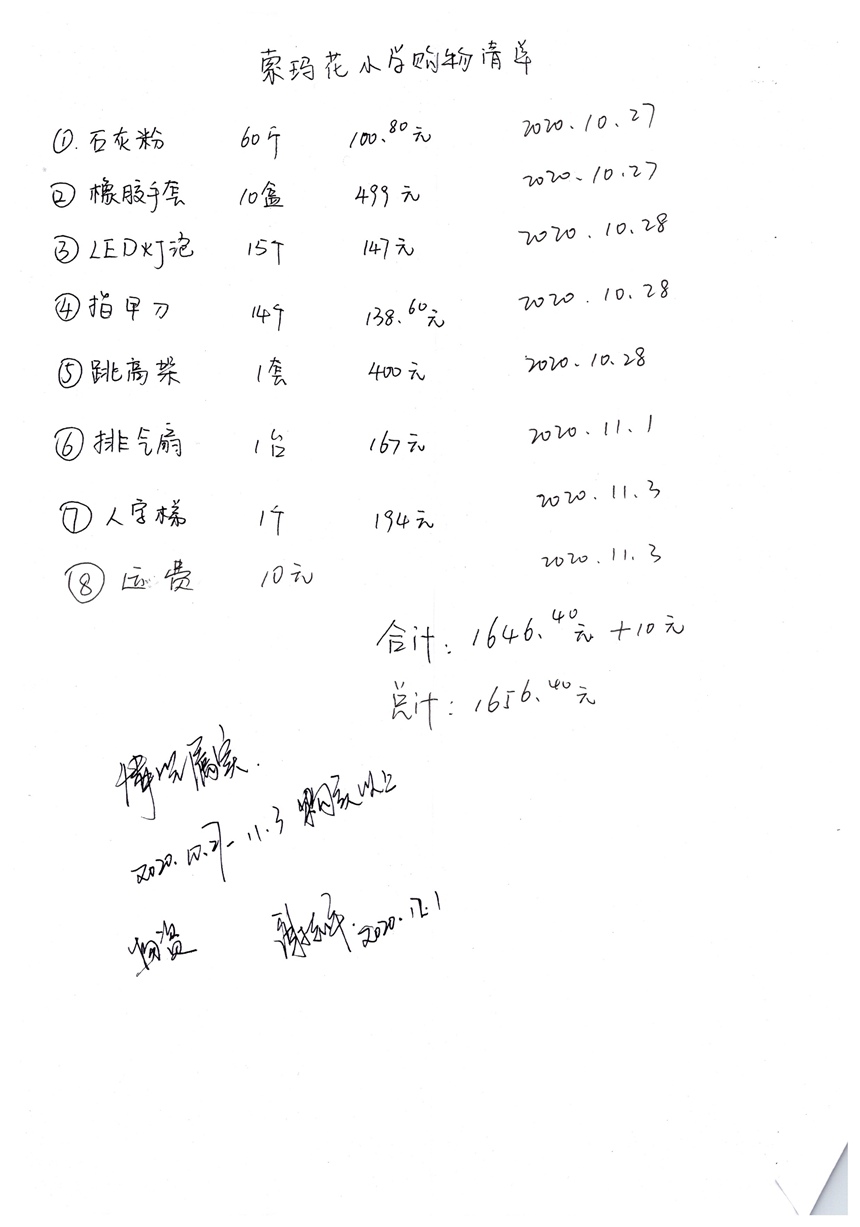 索玛花小学购物清单
①. 石灰粉 60斤 100.80元 2020.10.27
② 橡胶手套 10盒 499元 2020.10.27
③ LED灯泡 15个 147元 2020.10.28
④ 指甲刀 14个 138.60元 2020.10.28
⑤ 跳高架 1套 400元 2020.10.28
⑥ 排气扇 1台 167元 2020.11.1
⑦ 人字梯 1个 194元 2020.11.3
⑧ 运费 10元 2020.11.3
合计: 1646.40元 +10元
总计: 1656.40元
情况属实.
2020.10.27-11.3 购买以上
物资 2020.12.1